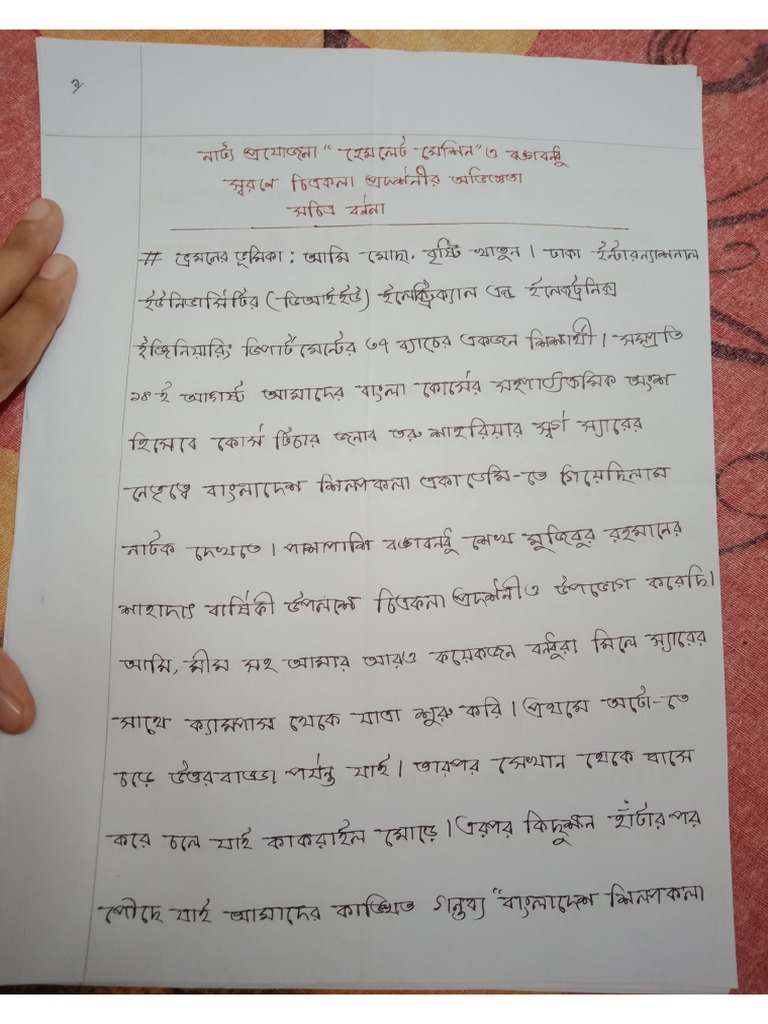 ২
নাট্য প্রযোজনা "হেমলেট মেশিন" ও বঙ্গবন্ধু
স্মরণে চিত্রকলা প্রদর্শনীর অভিজ্ঞতা
সচিত্র বর্ননা
# ভ্রমনের ভূমিকা : আমি মোছা. বৃষ্টি খাতুন। ঢাকা ইন্টারন্যাশনাল
ইউনিভার্সিটির (ডিআইইউ) ইলেকট্রিক্যাল এন্ড ইলেকট্রনিক্স
ইঞ্জিনিয়ারিং ডিপার্টমেন্টের ৩৭ ব্যাচের একজন শিক্ষার্থী। সম্প্রতি
১৪ ই আগস্ট আমাদের বাংলা কোর্সের সহপাঠ্যক্রমিক অংশ
হিসেবে কোর্স টিচার জনাব তরু শাহরিয়ার স্বর্গ স্যারের
নেতৃত্বে বাংলাদেশ শিল্পকলা একাডেমি-তে গিয়েছিলাম
নাটক দেখতে। পাশাপাশি বঙ্গবন্ধু শেখ মুজিবুর রহমানের
শাহাদাৎ বার্ষিকী উপলক্ষে চিত্রকলা প্রদর্শনীও উপভোগ করেছি।
আমি, মীম সহ আমার আরও কয়েকজন বন্ধুরা মিলে স্যারের
সাথে ক্যাম্পাস থেকে যাত্রা শুরু করি। প্রথমে অটো-তে
চড়ে উত্তরবাড্ডা পর্যন্ত যাই। তারপর সেখান থেকে বাসে
করে চলে যাই কাকরাইল মোড়ে। এরপর কিছুক্ষন হাঁটার পর
পৌছে যাই আমাদের কাঙ্খিত গন্তব্য "বাংলাদেশ শিল্পকলা